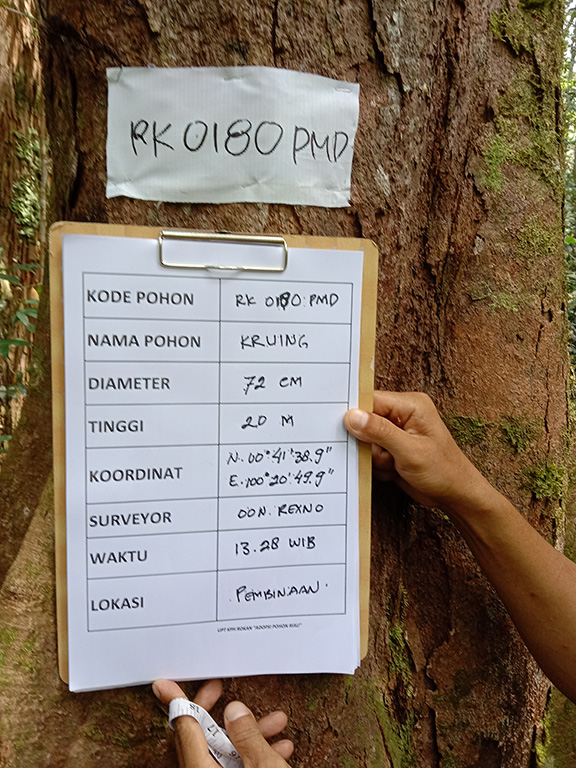 RK 0180 PMD
KODE POHON RK 0180. PMD
NAMA POHON KRUING
DIAMETER 72 CM
TINGGI 20 M
KOORDINAT N. 00° 41' 38.9"
E. 100° 20' 49.9"
SURVEYOR OON. REXNO
WAKTU 13.28 WIB
LOKASI . PEMBINAAN.
UPT KPH ROKAN "ADOPSI POHON RIAU"